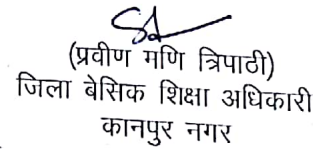 (प्रवीण मणि त्रिपाठी)
जिला बेसिक शिक्षा अधिकारी
कानपुर नगर